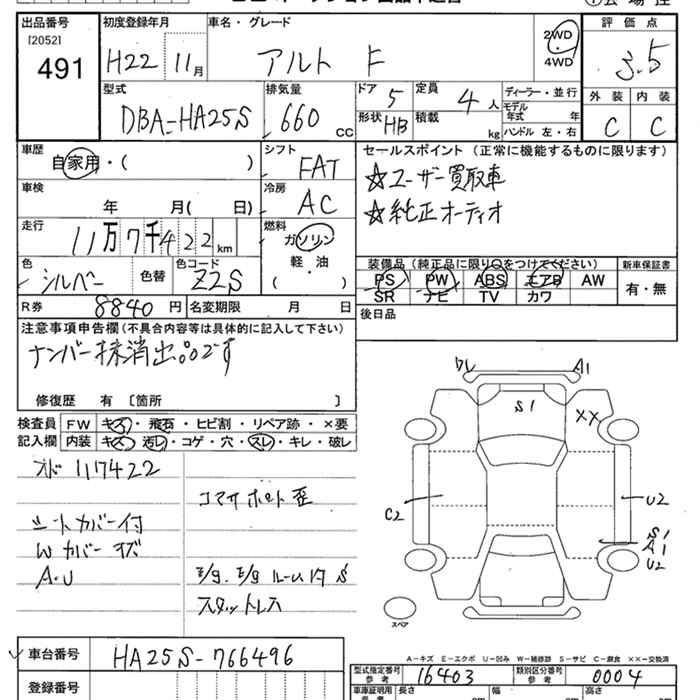 出品番号 初度登録年月 車名・グレード 評価点
[2052] 491 H22 11月 アルト F 2WD 4WD 3.5
型式 排気量 ドア 定員 ディーラー・並行 外装 内装
DBA-HA25S 660 CC 5 4人 モデル年式 年 C C
形状 HB 積載 kg ハンドル 左・右
車歴 シフト セールスポイント (正常に機能するものに限ります)
自家用・( ) FAT ☆ユーザー買取車
車検 冷房 ☆純正オーディオ
年 月( 日) AC
走行 燃料
11万7千422km ガソリン
色 色替 色コード 軽・油 装備品 (純正品に限り○をつけてください) 新車保証書
シルバー Z2S ( ) PS PW ABS エアB AW 有・無
SR ナビ TV カワ
R券 8840円 名変期限 月 日 後日品
注意事項申告欄(不具合内容等は具体的に記入して下さい)
ナンバー抹消出品です
修復歴 有 〔箇所 〕
検査員 FW キズ・飛石・ヒビ割・リペア跡・×要
記入欄 内装 キズ・汚レ・コゲ・穴・スレ・キレ・破レ
オド 117422
コアサポート歪
シートカバー付
Wカバーキズ
A・U
E/g. E/gルーム内 S
スタットレス
A1
S1
XX
C2
U2
S1
A1
U2
スペア
A-キズ E-エクボ U-凹み W-補修跡 S-サビ C-腐食 ××-交換済
車台番号 HA25S-766496 型式指定番号 参考 16403 類別区分番号 参考 0004
登録番号 車庫証明用 長さ cm 幅 cm 高さ cm